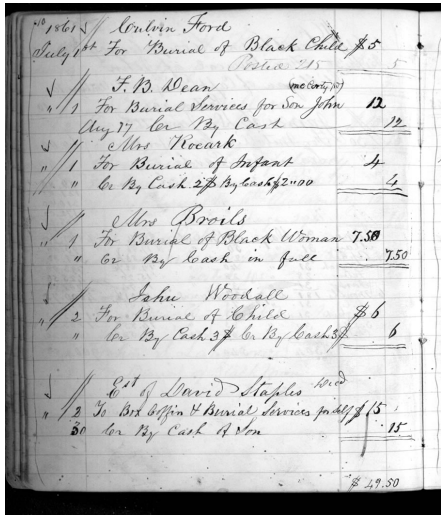 1861 Culvin Ford
July 1st For Burial of Black Child $5
Posted 215 5
F. B. Dean
" 1 For Burial Services for Son John 12
Aug 17 Cr By Cash 12
Mrs Rocark
" 1 For Burial of Infant 4
" Cr By Cash 2$ By Cash $2.00 4
Mrs Broils
" 1 For Burial of Black Woman 7.50
" Cr By Cash in full 7.50
John Woodall
" 2 For Burial of Child $6
" Cr By Cash 3$ Cr By Cash 3$ 6
Est of David Staples Decd
" 2 To Box Coffin & Burial Services for self $15
30 Cr By Cash A Son 15
$ 49.50